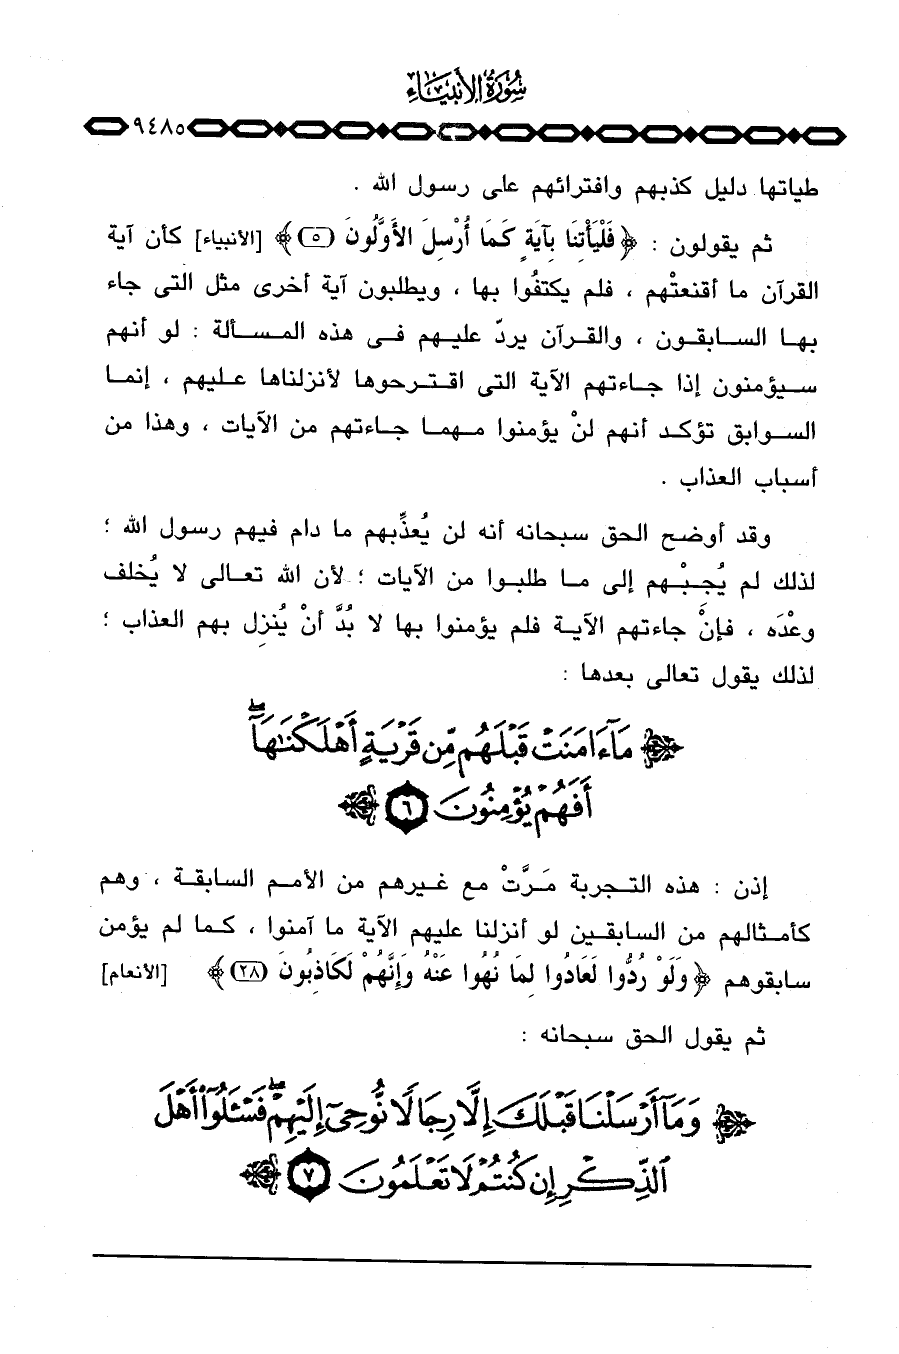 سُورَةُ الأَنبِيَاءِ
٩٤٨٥
طياتها دليل كذبهم وافترائهم على رسول الله .
ثم يقولون : ﴿ فَلْيَأْتِنَا بِآيَةٍ كَمَا أُرْسِلَ الأَوَّلُونَ (٥) ﴾ [الأنبياء] كأن آية
القرآن ما أقنعتْهم ، فلم يكتفُوا بها ، ويطلبون آية أخرى مثل التى جاء
بها السابقون ، والقرآن يردّ عليهم فى هذه المسألة : لو أنهم
سيؤمنون إذا جاءتهم الآية التى اقترحوها لأنزلناها عليهم ، إنما
السوابق تؤكد أنهم لنْ يؤمنوا مهما جاءتهم من الآيات ، وهذا من
أسباب العذاب .
وقد أوضح الحق سبحانه أنه لن يُعذِّبهم ما دام فيهم رسول الله ؛
لذلك لم يُجبْهم إلى ما طلبوا من الآيات ؛ لأن الله تعالى لا يُخلف
وعْدَه ، فإنْ جاءتهم الآية فلم يؤمنوا بها لا بُدَّ أنْ يُنزِل بهم العذاب ؛
لذلك يقول تعالى بعدها :
﴿ مَآ ءَامَنَتْ قَبْلَهُم مِّن قَرْيَةٍ أَهْلَكْنَٰهَآ ۖ
أَفَهُمْ يُؤْمِنُونَ ٦ ﴾
إذن : هذه التجربة مَرَّتْ مع غيرهم من الأمم السابقة ، وهم
كأمثالهم من السابقين لو أنزلنا عليهم الآية ما آمنوا ، كما لم يؤمن
سابقوهم ﴿ وَلَوْ رُدُّوا لَعَادُوا لِمَا نُهُوا عَنْهُ وَإِنَّهُمْ لَكَاذِبُونَ (٢٨) ﴾ [الأنعام]
ثم يقول الحق سبحانه :
﴿ وَمَآ أَرْسَلْنَا قَبْلَكَ إِلَّا رِجَالًا نُّوحِىٓ إِلَيْهِمْ ۖ فَسْـَٔلُوٓا۟ أَهْلَ
ٱلذِّكْرِ إِن كُنتُمْ لَا تَعْلَمُونَ ٧ ﴾